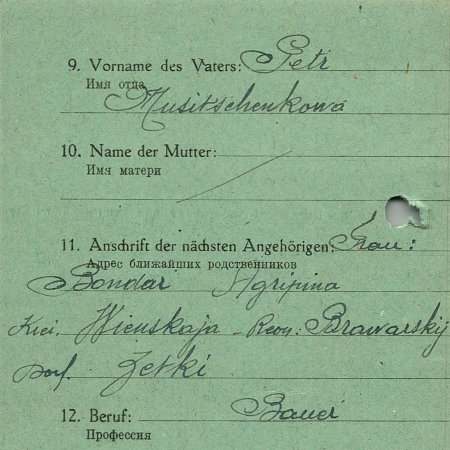 9. Vorname des Vaters: Petr
Имя отца
Musitschenkowa
10. Name der Mutter:
Имя матери
11. Anschrift der nächsten Angehörigen: Frau:
Адрес ближайших родственников
Bondar Agripina
Kiewskaja - Reon: Brawarskij
Dorf. Zetki
12. Beruf: Bauer
Профессия